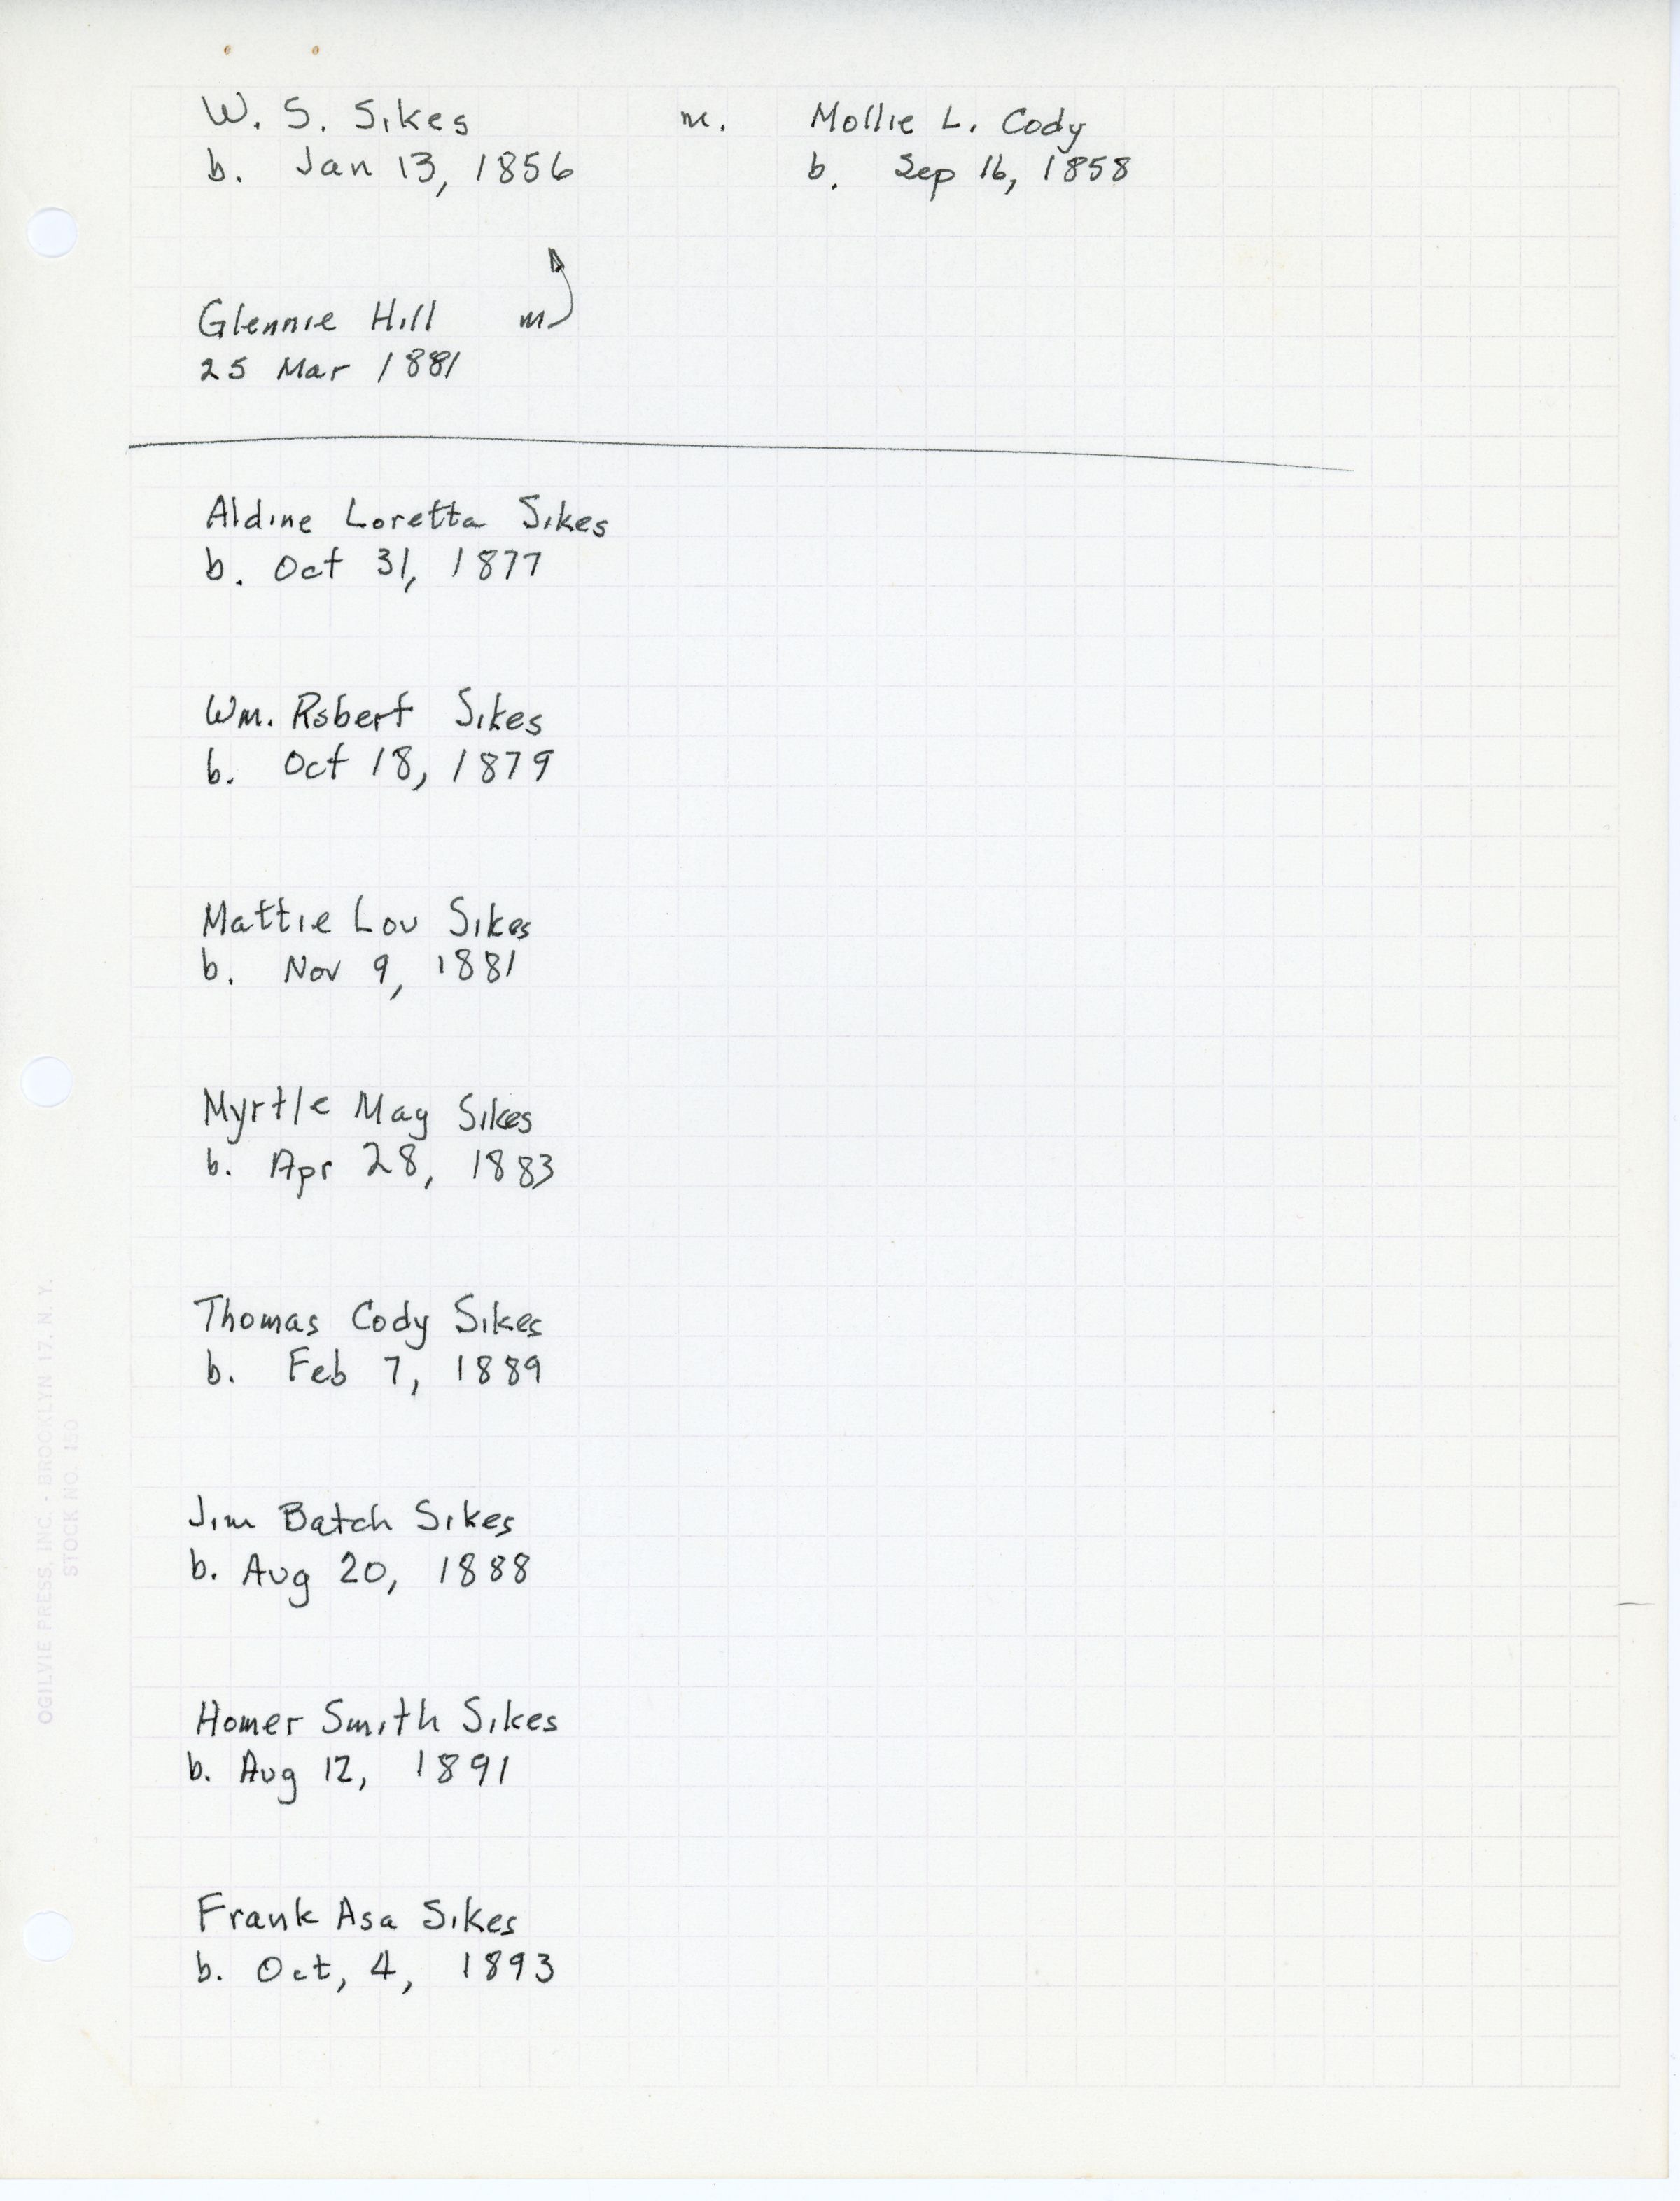 W. S. Sikes m. Mollie L. Cody
b. Jan 13, 1856 b. Sep 16, 1858
Glennie Hill m
25 Mar 1881
Aldine Loretta Sikes
b. Oct 31, 1877
Wm. Robert Sikes
b. Oct 18, 1879
Mattie Lou Sikes
b. Nov 9, 1881
Myrtle Mag Sikes
b. Apr 28, 1883
Thomas Cody Sikes
b. Feb 7, 1889
Jim Batch Sikes
b. Aug 20, 1888
Homer Smith Sikes
b. Aug 12, 1891
Frank Asa Sikes
b. Oct, 4, 1893
OGILVIE PRESS, INC. · BROOKLYN 17, N. Y.
STOCK NO. 150